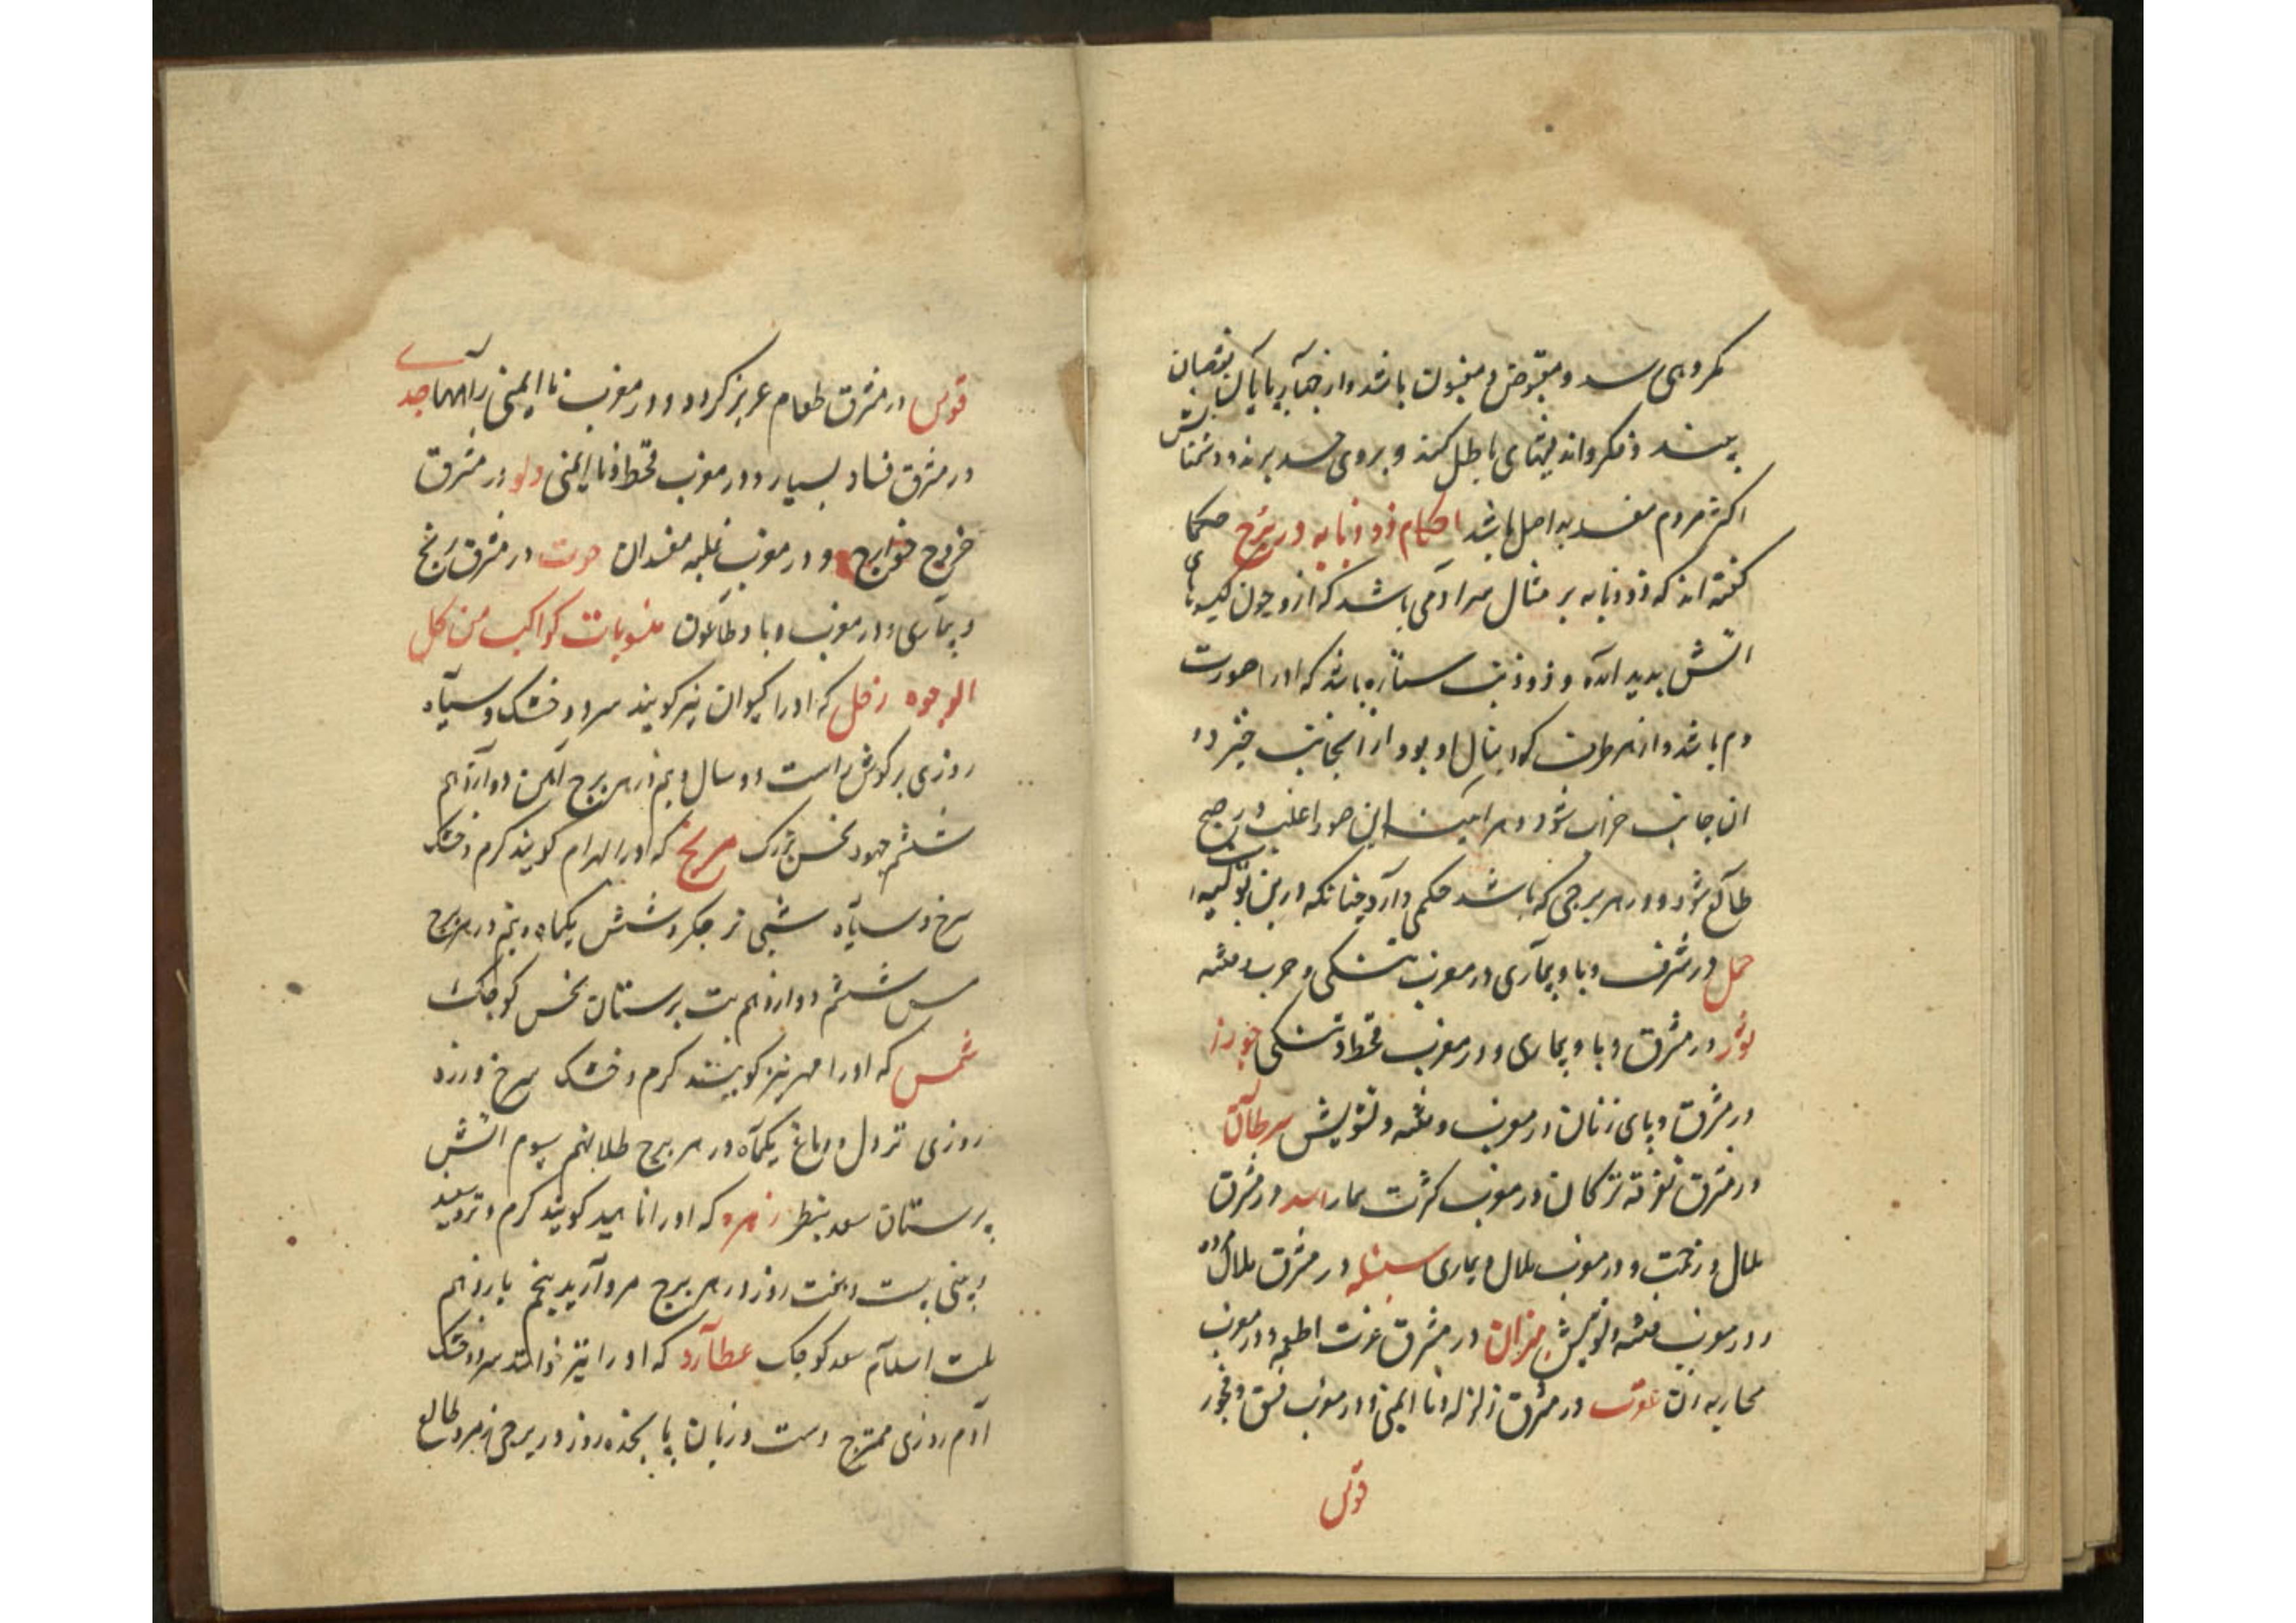 مکروهی رسد و مقبوض و مغبون باشد و از چهارپایان نقصان
بیند و فکر و اندیشهای باطل کند و بروی حسد برند و دشمنانش
اکثر مردم مفسد بد اصل باشد احکام ذو ذوابه در برج حکما
گفته اند که ذوذوابه بر مثال سر ادمی باشد که ازو چون گیسوهای
اتش بدید اید و ذو ذنب ستاره باشد که او را صورت
دم باشد و از هر طرف که دنبال او بود از انجانب خیزد و
ان جانب خراب شود و هر این صور اغلب در صبح
طالع شود و در هر برجی که باشد حکمی دارد چنانکه درین
حمل در شرق وبا و بیماری در مغرب تشنگی و حرب و فتنه
ثور در مشرق وبا و بیماری و در مغرب قحط و تشنگی جوزا
در مشرق وبای زنان در مغرب و فتنه و تشویش سرطان
در مشرق تفرقه ترکان در مغرب کثرت بمار اسد در مشرق
ملال و زحمت و در مغرب ملال و بیماری سنبله در مشرق ملال
و در مغرب فتنه و تشویش میزان در مشرق عزت اطعمه و در مغرب
محاربه ان عقرب در مشرق زلزله و نا ایمنی و در مغرب فسق و فجور
قوس
قوس در مشرق طعام عزیز گردد و در مغرب نا ایمنی راهها جدی
در مشرق فساد بسیار و در مغرب قحط و نا ایمنی دلو در مشرق
خروج خوارج و در مغرب غلبه مفسدان حوت در مشرق رنج
و بیماری و در مغرب وبا و طاعون منسوبات کواکب من کل
الوجوه زحل که او را کیوان نیز گویند سرد و خشک و سیاه
روزی بر گوش راست دو سال و نیم در هر برج آهن دوازدهم
ششم جهود نحس بزرگ مریخ که او را بهرام گویند گرم و خشک
سرخ و سیاه شبی نر جگر و شش یکماه و نیم در هر برج
مس ششم دوازدهم بت پرستان نحس کوچک
شمس که او را مهر نیز گویند گرم و خشک سرخ و زرد
روزی نر دل و دماغ یکماه در هر برج طلا نهم سیوم اتش
پرستان سعد بنظر زهره که او را ناهید گویند گرم و تر سپید
و بینی بیست و هفت روز در هر برج مروارید پنجم یازدهم
ملت اسلام سعد کوچک عطارد که او را تیر خوانند سرد و خشک
آدم روزی ممتزج دست و زبان پا پنجده روز در برجی زمرد طالع